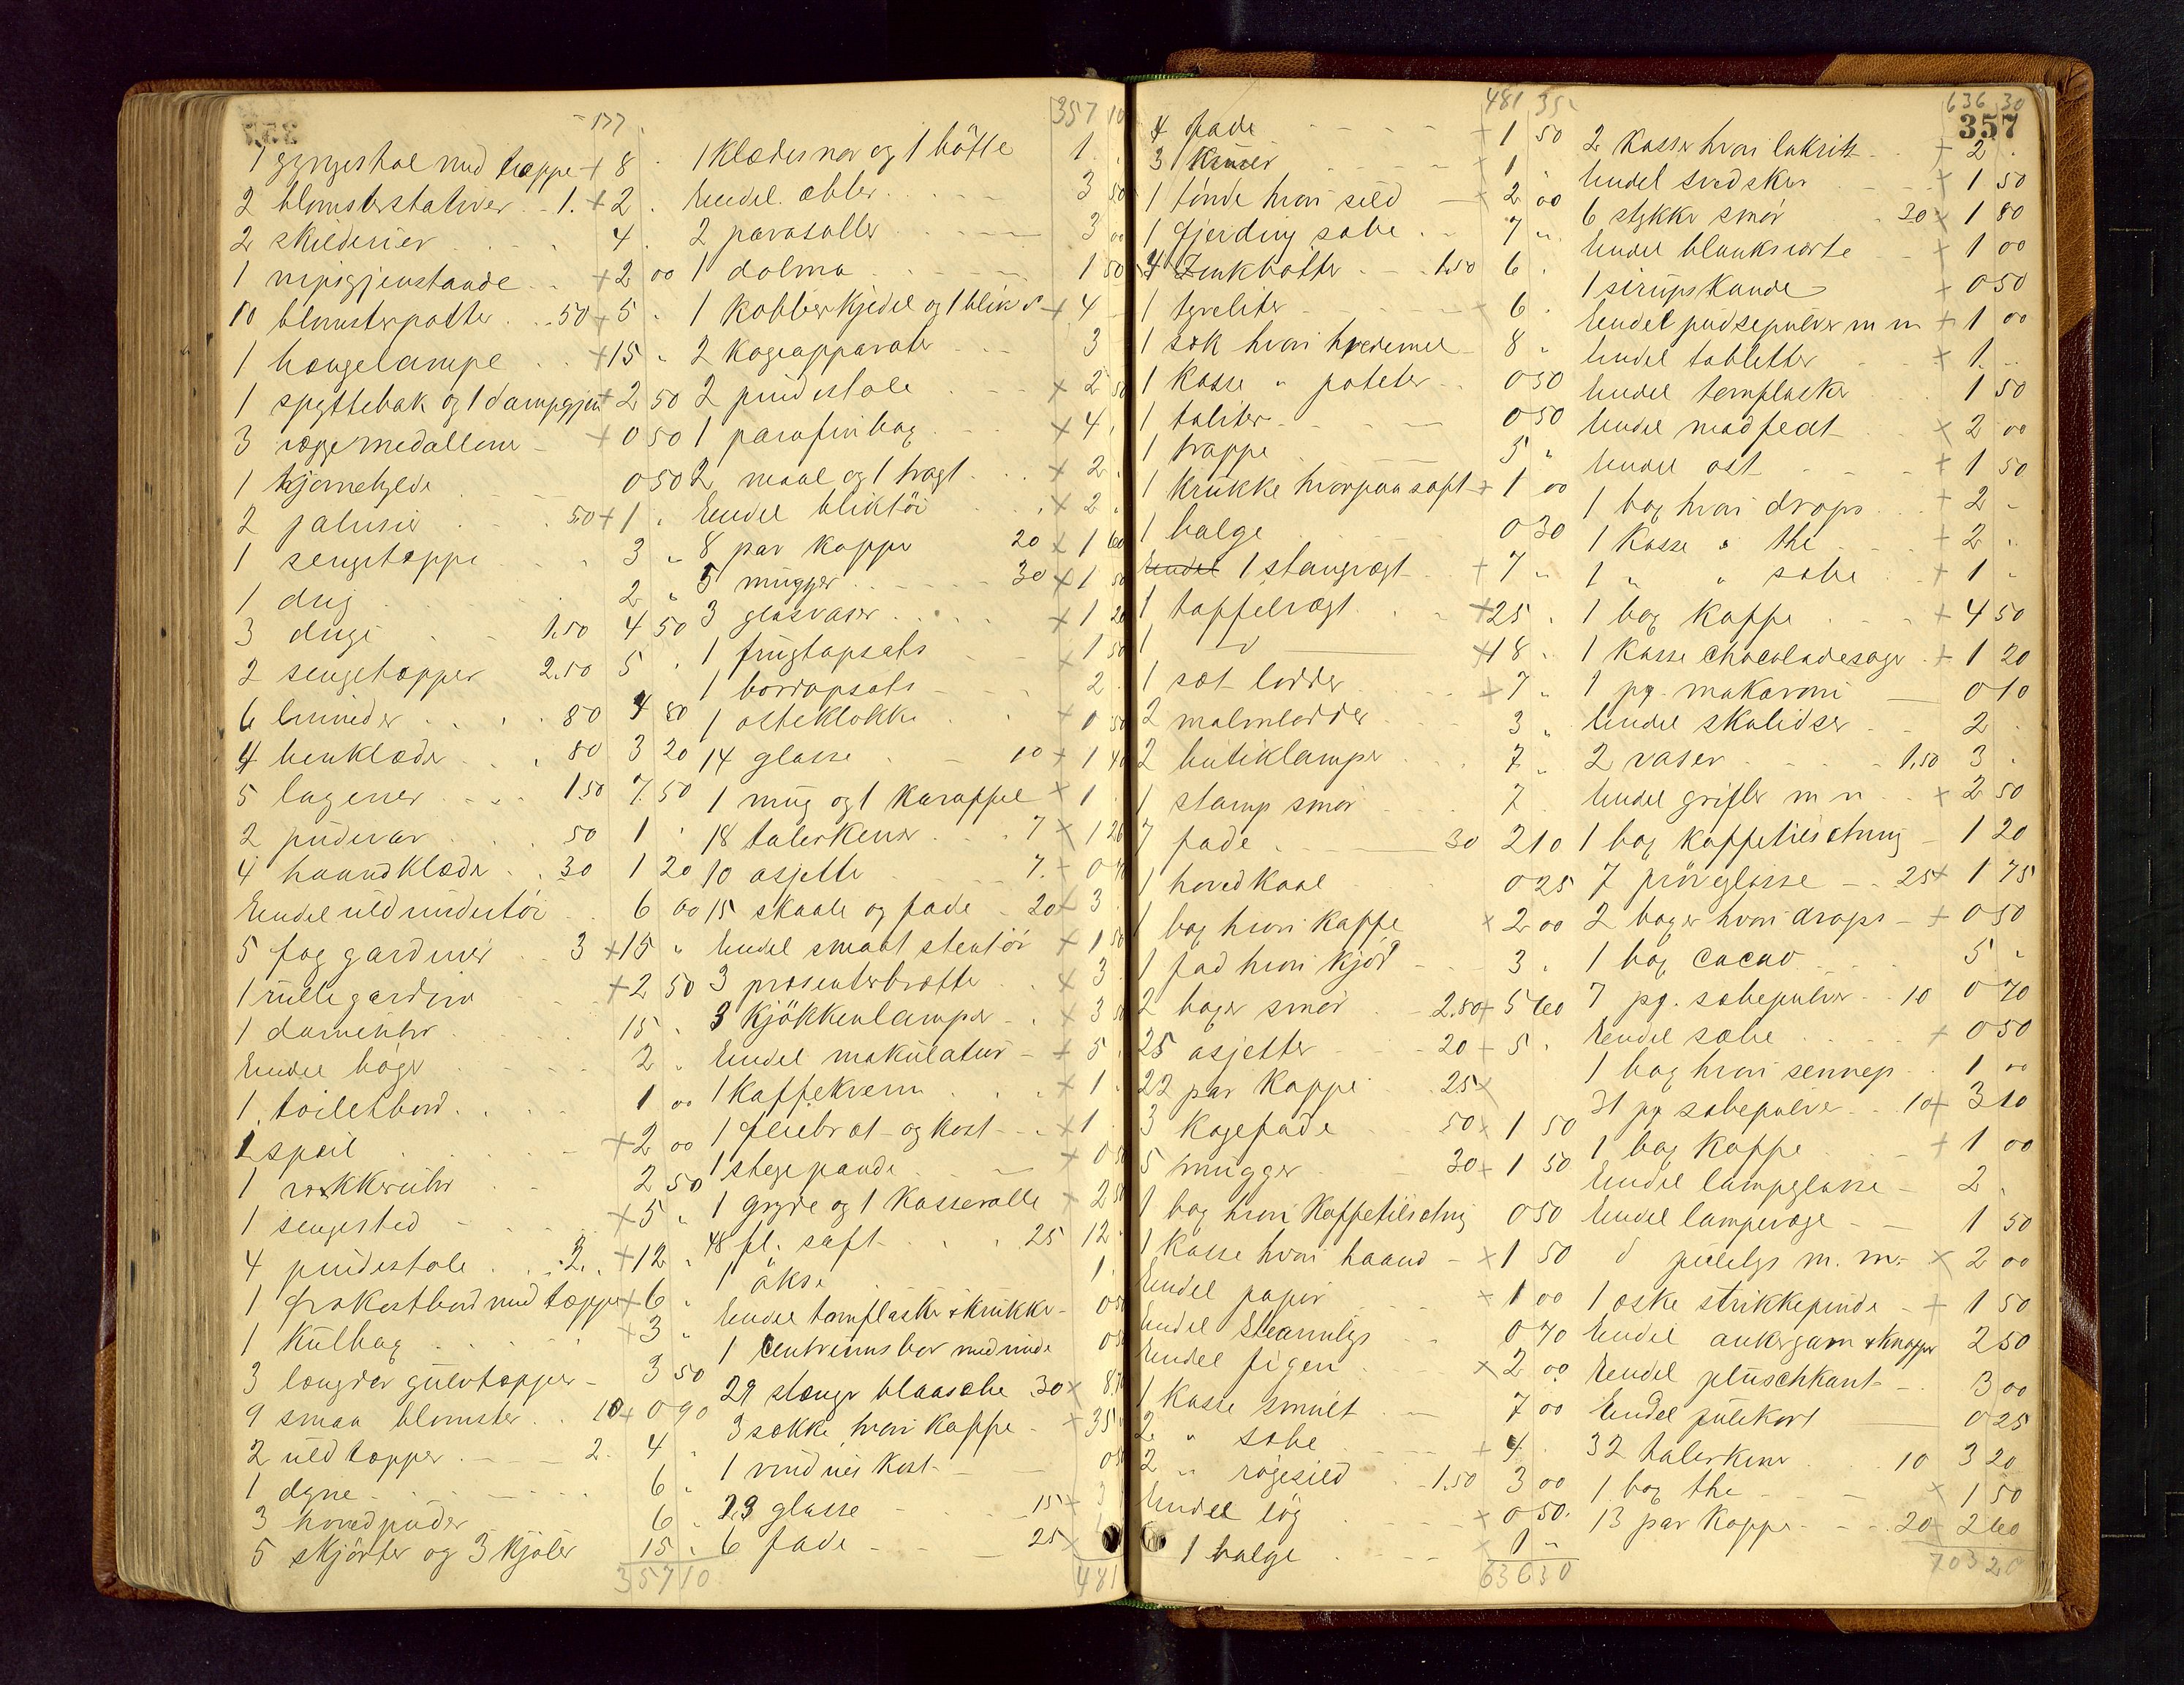 177
1 gyngestol med tæppe + 8 .
2 blomsterstativer - 1. + 2 .
2 skilderier 4 .
1 nipsgjenstande + 2 00
10 blomsterpotter 50 + 5 .
1 hængelampe + 15 "
1 spyttebak og 1 dampgjen + 2 50
3 medallone + 0 50
1 hjørnehylde 0 50
2 jalusie 50 + 1 "
1 sengetæppe 3 "
1 dug 2 "
3 duge 1.50 4 50
2 sengetæpper 2.50 5 .
6 linneder 80 4 80
4 benklæder 80 3 20
5 lagener 1 50 7.50
2 pudevar 50 1 "
4 haandklæde 30 1 20
Endel uldundertöi 6 00
5 fag gardiner 3 + 15 "
1 rullegardin + 2 50
1 dameuhr 15 "
Endel bøger 2 "
1 toiletbord 1 00
1 speil + 2 00
1 vækkeruhr 2 50
1 sengested + 5 "
4 pindestole 3. + 12 "
1 frokostbord med tæppe + 6 "
1 Kulbag + 3 "
3 længder gulvtæpper 3 50
9 smaa blomster 10 + 0 90
2 uldtæpper 2. 4 "
1 dyne 6 "
3 hovedpuder 6 "
5 skjørter og 3 Kjoler 15 "
357 10
357 10
1 klædesnor og 1 bötte 1 .
Endel æbler 3 50
2 parasoller 3 00
1 dolma 1 50
1 Kobberkjedel og 1 blik d + 4
2 Kogeapparater 3
2 pindestole + 2 50
1 parafinbag + 4 .
2 maal og 1 tragt + 2 .
Endel bliktöi + 2 .
8 par kopper 20 + 1 60
5 mugger 30 + 1 50
3 glasvaser + 1 20
1 frugtopsats + 1 50
1 bordopsats 2 .
1 osteklokke + 1 50
14 glasse 10 + 1 40
1 mug og 1 karaffel + 1 .
18 talerkener 7 + 1 26
10 asjetter 7. - 0 70
15 skaale og fade 20 + 3 .
Endel smaat stentöi + 1 50
3 præsenterbrætte + 3 .
3 kjökkenlamper + 3 50
Endel makulatur + 5 .
1 Kaffekværn + 1 .
1 feiebræt og kost + 1 .
1 stegepande + 0 50
1 gryde og 1 Kasserolle + 2 50
48 fl. saft 25 12 .
1 ökse 1 .
Endel tomflasker & krukke 0 50
1 Centrumsbor med vinde 0 50
29 stænger blaasæbe 30 + 8 70
3 sække hvori kaffe + 35
1 vindueskost 0 50
23 glasse 15 + 3
6 fade 25 +
481
357
481 35
4 fade + 1 50
3 Kruser + 1 .
1 tönde hvori sild + 2 00
1 fjerding sæbe 7 "
4 Zinkbøtter 1.50 6 .
1 tereliter 6 .
1 sæk hvori hvedemel 8 "
1 kasse " poteter 0 50
1 taliter 0 50
1 trappe 5 "
1 krukke hvorpaa saft + 1 00
1 balge 0 30
1 stangvægt + 7 "
1 taffelvægt + 25 .
1 d + 18 "
1 sæt lodder + 7 "
2 malmlodder 3 "
2 butiklamper 7 "
1 stamp smør 7
7 fade 30 2 10
1 hovedkaal 0 25
1 bag hvori kaffe + 2 00
1 fad hvori kjød 3 .
2 bager smør 2.80 + 5 60
25 asjetter 20 + 5 "
22 par Kopper 25 +
3 Kagefade 50 + 1 50
5 mugger 30 + 1 50
1 bag hvori Kaffetilsetning 0 50
1 Kasse hvori haand + 1 50
Endel papir + 1 00
Endel Stearinlys 0 70
Endel figen + 2 00
1 kasse smult 7 00
2 " sæbe + 4 .
2 " røgesild 1.50 3 00
Endel løg + 0 50.
1 balge + 1 "
636 30
636 30
2 Kasser hvori lakrits + 2 .
Endel svedsker + 1 50
6 stykker smör 30 + 1 80
Endel blanksværte + 1 00
1 sirupskande + 0 50
Endel pudsepulver m m + 1 00
Endel tabletter + 1 "
Endel tomflasker 1 50
Endel madfedt + 2 00
Endel ost + 1 50
1 bag hvori drops + 2 "
1 Kasse " the + 2 "
1 " " sæbe + 1 "
1 bag kaffe + 4 50
1 Kasse Chocoladesager + 1 20
1 pg. makaroni 0 10
Endel skolidser 2 .
2 vaser 1.50 3 .
Endel grifler m n + 2 50
1 bag kaffetilsetning 1 20
7 prøveglasse 25 + 1 75
2 bager hvori drops + 0 50
1 bag Cacao 5 "
7 pg. sæbepulver 10 0 70
Endel sæbe + 0 50
1 bag hvori sennep 1 00
31 pg sæbepulver 10 + 3 10
1 bag kaffe + 1 00
Endel lampeglasse 2 .
Endel lampevæge 1 50
d julelys m. m. + 2 00
1 æske strikkepinde + 1 50
Endel ankergarn & knapper 2 50
Endel pluschkant 3 00
Endel julekort 0 25
32 talerkener 10 3 20
1 bag the + 1 50
13 par Kopper 20 + 2 60
703 20